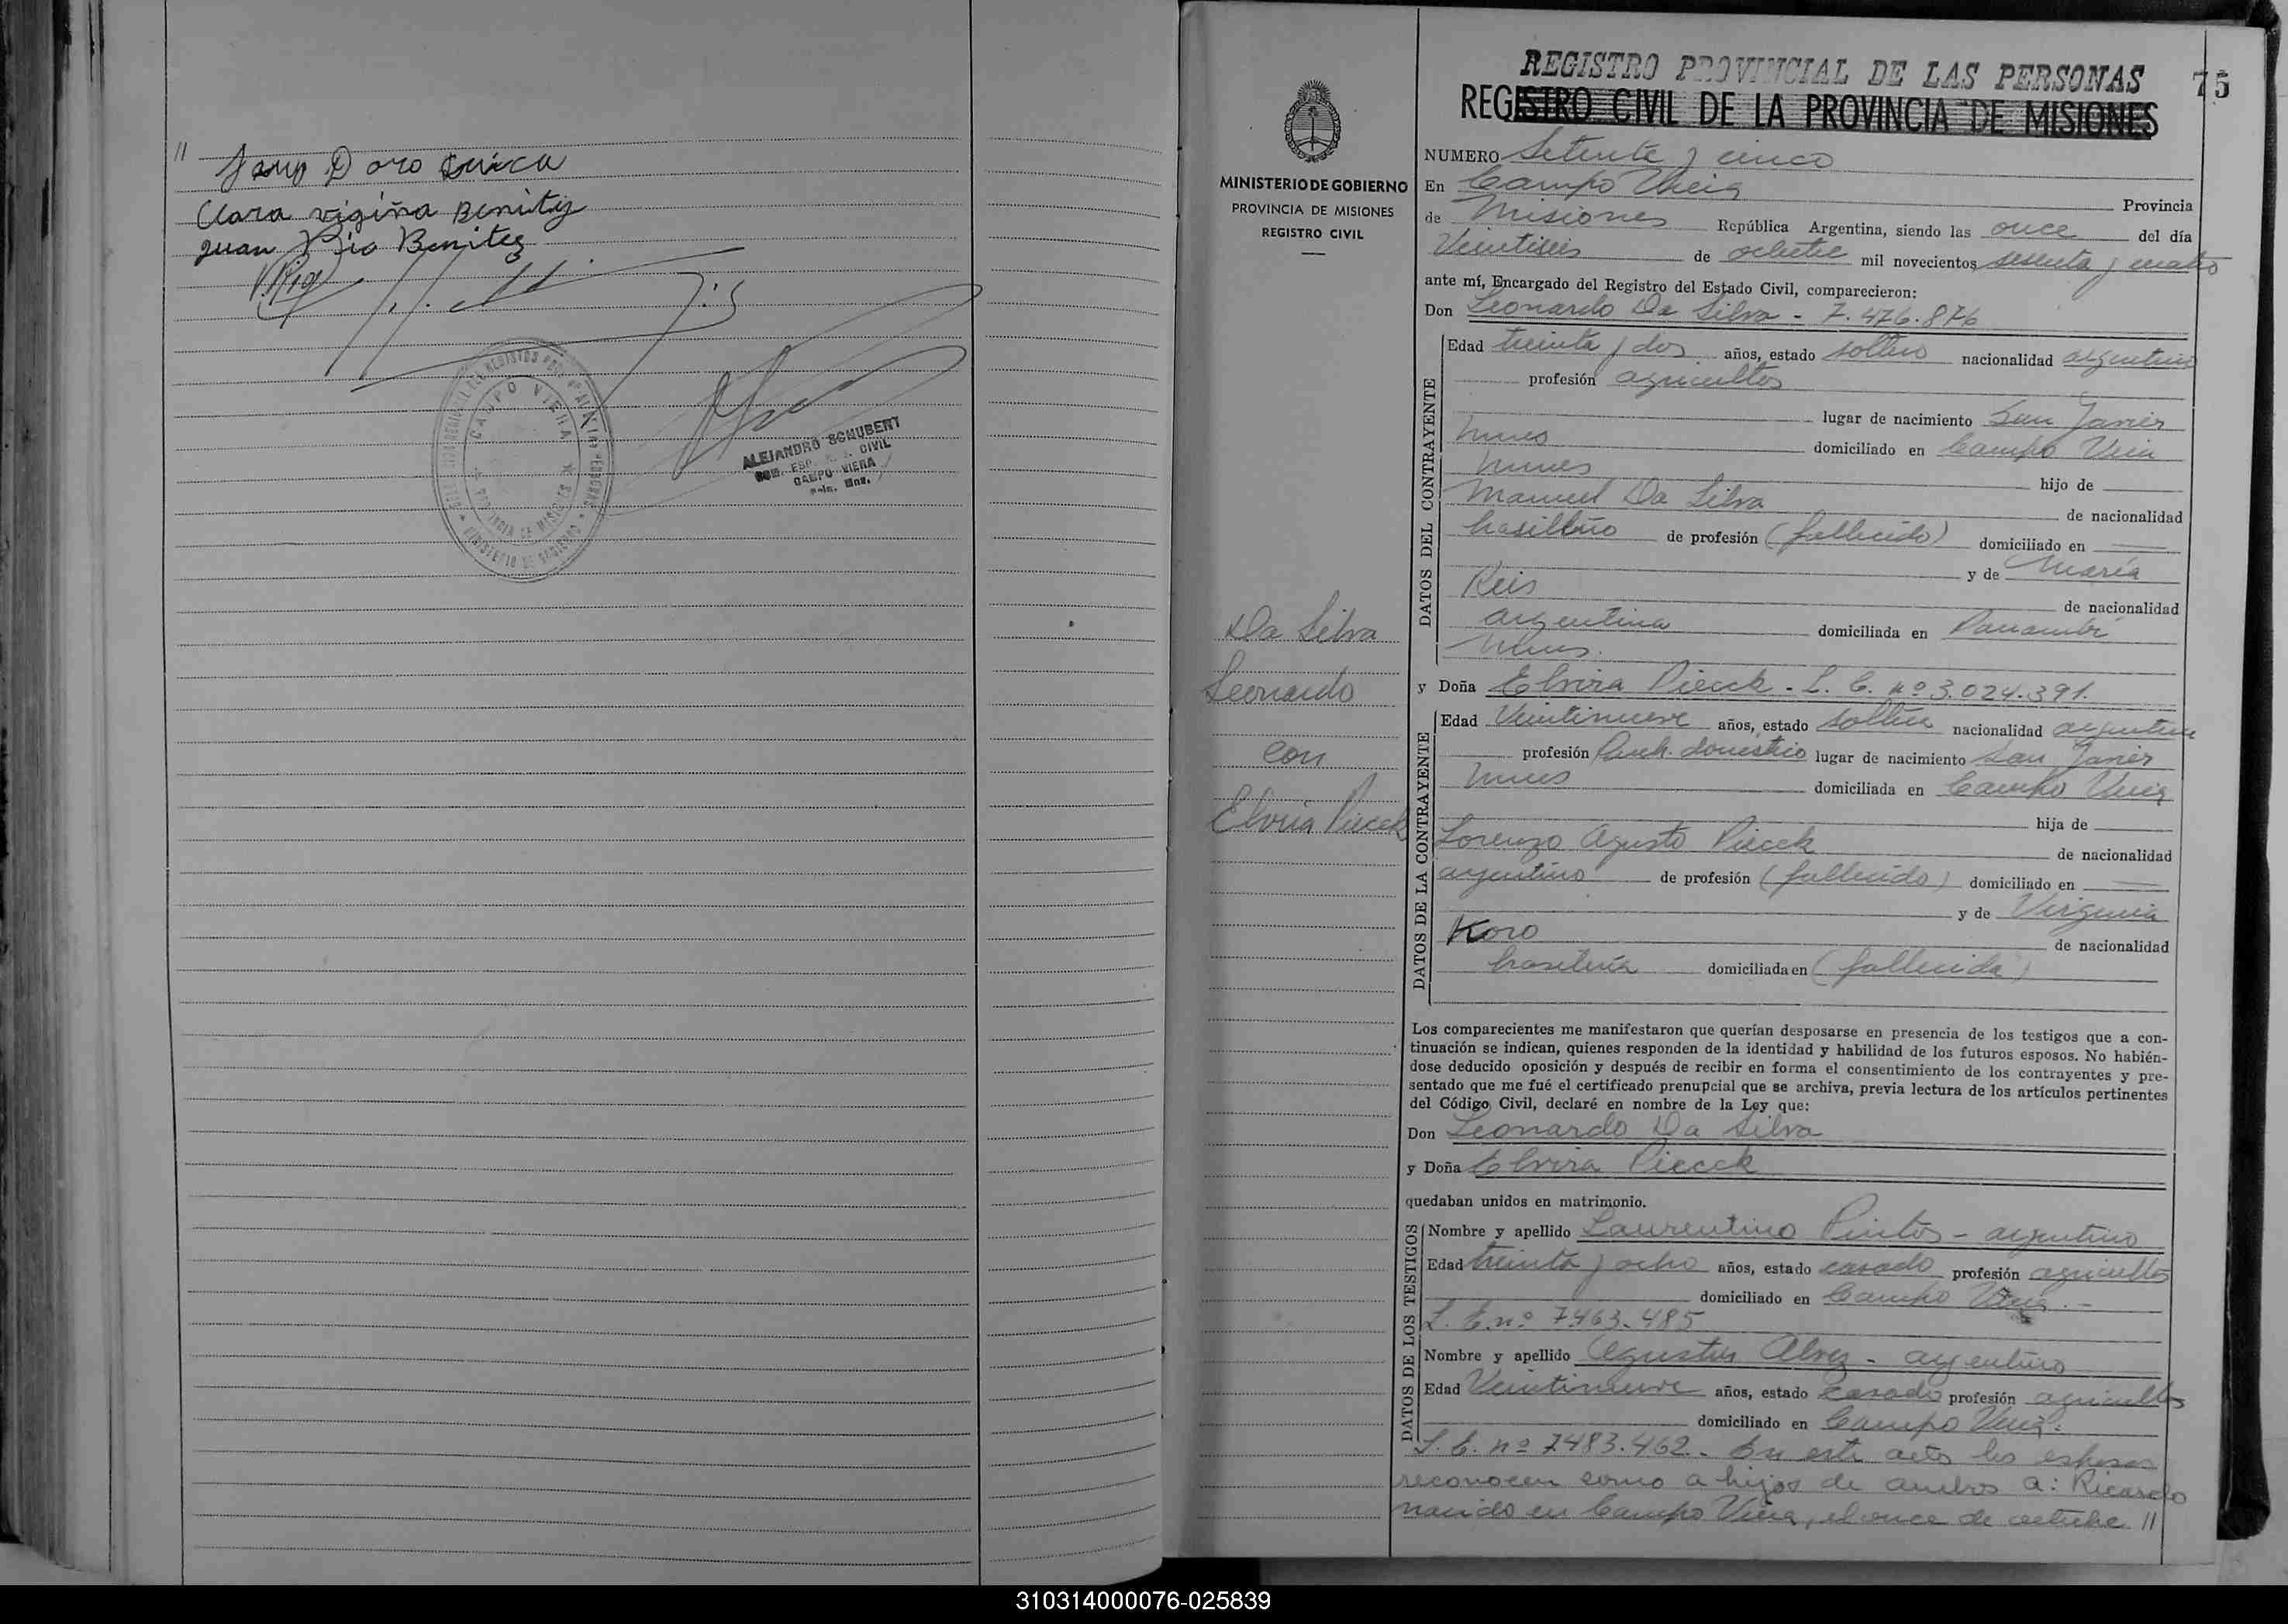 11
Clara vigiña Benitez
Juan Pio Benitez
CAMPO VIERA
PROVINCIA DE MISIONES
MINISTERIO DE GOBIERNO
ALEJANDRO SCHUBERT
CIVIL
CAMPO VIERA
REGISTRO PROVINCIAL DE LAS PERSONAS
75
REGISTRO CIVIL DE LA PROVINCIA DE MISIONES
MINISTERIO DE GOBIERNO
PROVINCIA DE MISIONES
REGISTRO CIVIL
NUMERO Setenta y cinco
En Campo Viera Provincia
de Misiones República Argentina, siendo las once del día
Veintiseis de octubre mil novecientos sesenta y cuatro
ante mí, Encargado del Registro del Estado Civil, comparecieron:
Don Leonardo Da Silva - 7.476.876
DATOS DEL CONTRAYENTE
Edad treinta y dos años, estado soltero nacionalidad argentino
profesión agricultor
lugar de nacimiento San Javier
domiciliado en Campo Viera
hijo de
Manuel Da Silva de nacionalidad
brasilero de profesión (fallecido) domiciliado en
y de María
Reis de nacionalidad
argentina domiciliada en Panambí
Da Silva
Leonardo
con
Elvira Piecck
y Doña Elvira Piecck - L. C. nº 3.024.391.
DATOS DE LA CONTRAYENTE
Edad Veintinueve años, estado soltera nacionalidad argentina
profesión domestico lugar de nacimiento San Javier
domiciliada en Campo Viera
hija de
Lorenzo Agusto Piecck de nacionalidad
argentino de profesión (fallecido) domiciliado en
y de Virginia
Koro de nacionalidad
brasilera domiciliada en (fallecida)
Los comparecientes me manifestaron que querían desposarse en presencia de los testigos que a con-
tinuación se indican, quienes responden de la identidad y habilidad de los futuros esposos. No habién-
dose deducido oposición y después de recibir en forma el consentimiento de los contrayentes y pre-
sentado que me fué el certificado prenupcial que se archiva, previa lectura de los artículos pertinentes
del Código Civil, declaré en nombre de la Ley que:
Don Leonardo Da Silva
y Doña Elvira Piecck
quedaban unidos en matrimonio.
DATOS DE LOS TESTIGOS
Nombre y apellido Laurentino Pintos - argentino
Edad treinta y ocho años, estado casado profesión agricultor
domiciliado en Campo Viera.-
L. E. nº 7463.485
Nombre y apellido Agustin Alvez - argentino
Edad Veintinueve años, estado casado profesión agricultor
domiciliado en Campo Viera.
L. E. nº 7483.462.- En este acto los esposos
reconocen como a hijos de ambos a: Ricardo
nacido en Campo Viera, el once de octubre 11
310314000076-025839